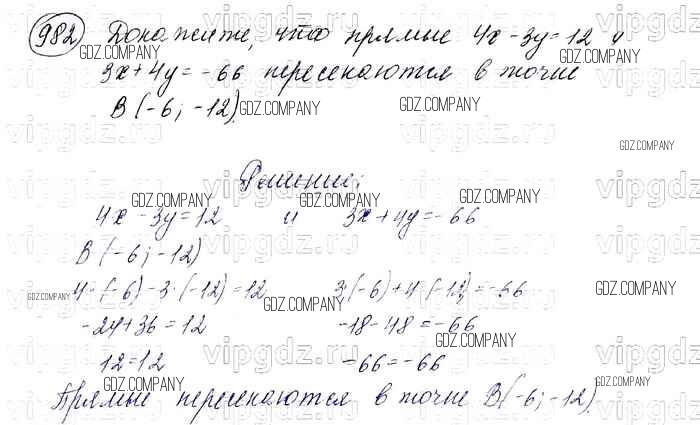 982 Докажите, что прямые 4x - 3y = 12 и
3x + 4y = -66 пересекаются в точке
B (-6; -12).
Решение:
4x - 3y = 12 и 3x + 4y = -66
B (-6; -12)
4·(-6) - 3·(-12) = 12 3·(-6) + 4·(-12) = -66
-24 + 36 = 12 -18 - 48 = -66
12 = 12 -66 = -66
Прямые пересекаются в точке B(-6; -12).
GDZ.COMPANY
vipgdz.ru